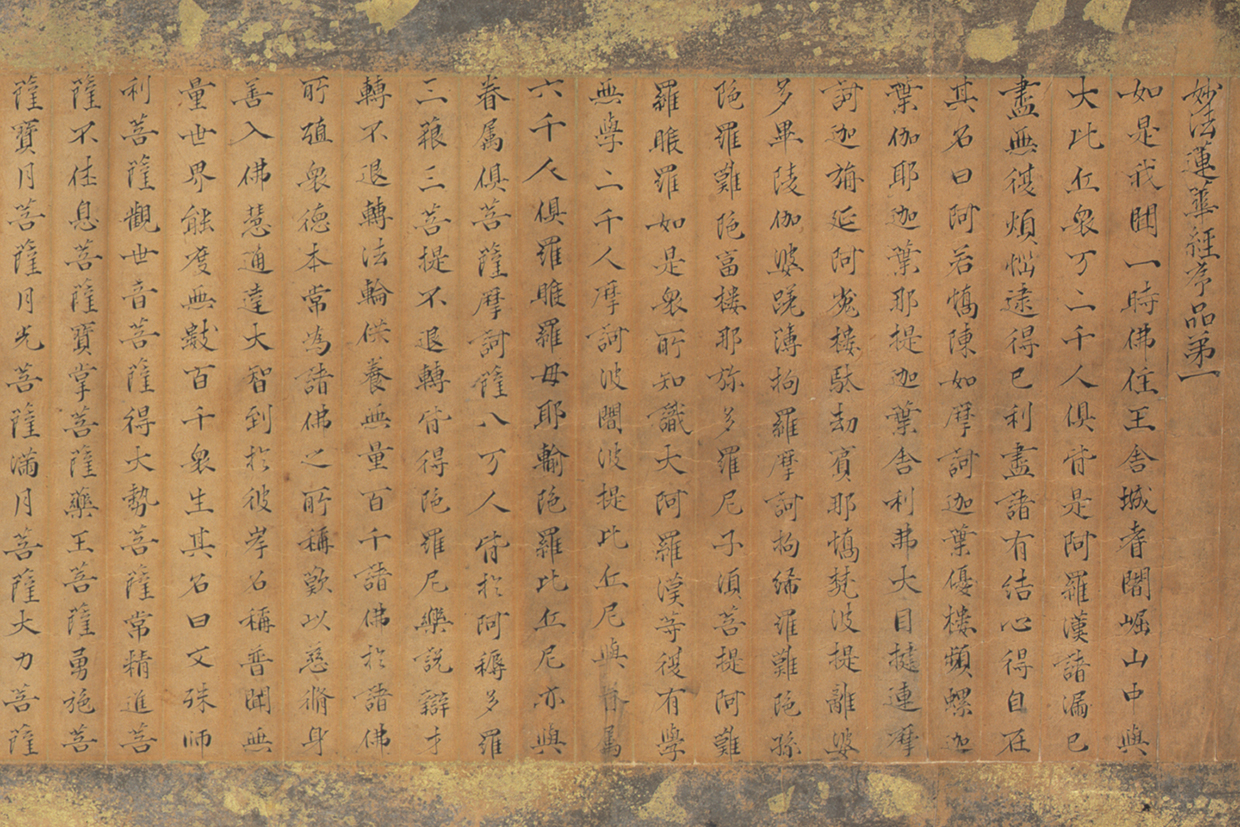 妙法蓮華經序品第一
如是我聞一時佛住王舍城耆闍崛山中與
大比丘衆万二千人俱皆是阿羅漢諸漏已
盡無復煩惱逮得已利盡諸有結心得自在
其名曰阿若憍陳如摩訶迦葉優樓頻螺迦
葉伽耶迦葉那提迦葉舍利弗大目揵連摩
訶迦旃延阿㝹樓馱劫賓那憍梵波提離婆
多畢陵伽婆蹉薄拘羅摩訶拘絺羅難陁孫
陁羅難陁富樓那弥多羅尼子須菩提阿難
羅睺羅如是衆所知識大阿羅漢等復有學
無學二千人摩訶波闍波提比丘尼與眷屬
六千人俱羅睺羅母耶輸陁羅比丘尼亦與
眷屬俱菩薩摩訶薩八万人皆於阿耨多羅
三藐三菩提不退轉皆得陁羅尼樂說辯才
轉不退轉法輪供養無量百千諸佛於諸佛
所殖衆德本常為諸佛之所稱歎以慈脩身
善入佛慧通達大智到於彼岸名稱普聞無
量世界能度無數百千衆生其名曰文殊師
利菩薩觀世音菩薩得大勢菩薩常精進菩
薩不休息菩薩寶掌菩薩藥王菩薩勇施菩
薩寶月菩薩月光菩薩滿月菩薩大力菩薩